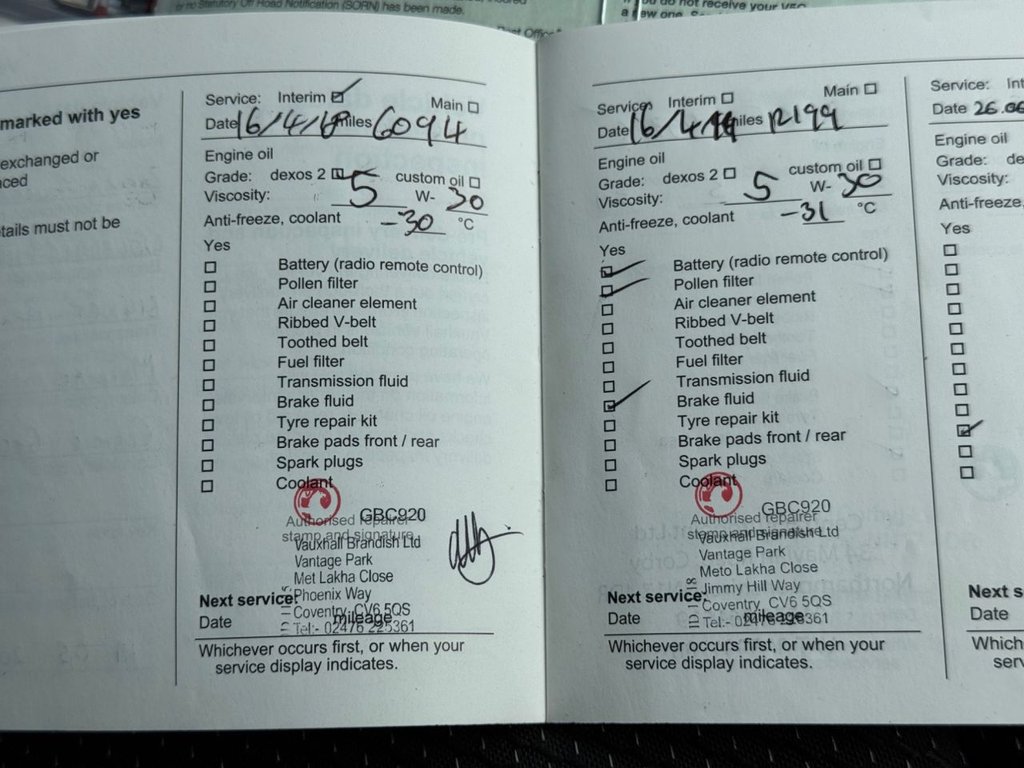 or no Statutory Off Road Notification (SORN) has been made.
If you do not receive your V5C
a new one.
marked with yes
exchanged or
etails must not be
Service: Interim ☑ Main ☐
Date 16/4/18 miles 6094
Engine oil
Grade: dexos 2 ☑ custom oil ☐
Viscosity: 5 W- 30
Anti-freeze, coolant -30 °C
Yes
☐ Battery (radio remote control)
☐ Pollen filter
☐ Air cleaner element
☐ Ribbed V-belt
☐ Toothed belt
☐ Fuel filter
☐ Transmission fluid
☐ Brake fluid
☐ Tyre repair kit
☐ Brake pads front / rear
☐ Spark plugs
☐ Coolant
GBC920
Authorised repairer
stamp and signature
Vauxhall Brandish Ltd
Vantage Park
Met Lakha Close
Phoenix Way
Next service:
Coventry, CV6 5QS
Date mileage
Tel:- 02476 225361
Whichever occurs first, or when your
service display indicates.
Service: Interim ☐ Main ☐
Date 16/4/ miles 12199
Engine oil
Grade: dexos 2 ☐ custom oil ☐
Viscosity: 5 W- 30
Anti-freeze, coolant -31 °C
Yes
☑ Battery (radio remote control)
☑ Pollen filter
☐ Air cleaner element
☐ Ribbed V-belt
☐ Toothed belt
☐ Fuel filter
☐ Transmission fluid
☑ Brake fluid
☐ Tyre repair kit
☐ Brake pads front / rear
☐ Spark plugs
☐ Coolant
GBC920
Authorised repairer
stamp and signature
Vauxhall Brandish Ltd
Vantage Park
Meto Lakha Close
Jimmy Hill Way
Next service:
Coventry, CV6 5QS
Date mileage
Tel:- 02476 225361
Whichever occurs first, or when your
service display indicates.
Service: Int
Date 26.06
Engine oil
Grade: de
Viscosity:
Anti-freeze,
Yes
Next s
Date
Which
serv